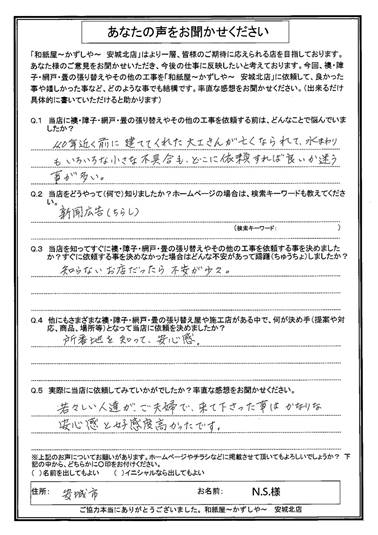 あなたの声をお聞かせください
「和紙屋～かずしや～ 安城北店」はより一層、皆様のご期待に応えられる店を目指しております。
あなた様のご意見をお聞かせいただき、今後の仕事に反映したいと考えております。今回、襖・障
子・網戸・畳の張り替えやその他の工事を「和紙屋～かずしや～ 安城北店」に依頼して、良かった
事や嬉しかった事など、どのような事でも結構です。率直な感想をお聞かせください。(出来るだけ
具体的に書いていただけると助かります)
Q.1 当店に襖・障子・網戸・畳の張り替えやその他の工事を依頼する前は、どんなことで悩んでいま
したか?
40年近く前に建ててくれた大工さんが亡くなられて、水まわり
もいろいろな小さな不具合も、どこに依頼すれば良いか迷う
事が多い。
Q.2 当店をどうやって(何で)知りましたか?ホームページの場合は、検索キーワードも教えてくださ
い。
新聞広告(ちらし)
(検索キーワード: )
Q.3 当店を知ってすぐに襖・障子・網戸・畳の張り替えやその他の工事を依頼する事を決めました
か?すぐに依頼する事を決めなかった場合はどんな不安があって躊躇(ちゅうちょ)しましたか?
知らないお店だったら不安が少々。
Q.4 他にもさまざまな襖・障子・網戸・畳の張り替え屋や施工店がある中で、何が決め手(提案や対
応、商品、場所等)となって当店に依頼を決めましたか?
所番地を知って、安心感。
Q.5 実際に当店に依頼してみていかがでしたか?率直な感想をお聞かせください。
若々しい人達が、ご夫婦で、来て下さった事は かなりな
安心感と好感度高かったです。
※上記のお声についてお願いがあります。ホームページやチラシなどに掲載させて頂いてもよろしいでしょうか? 下
記の中から、どちらかに○印をお付けください。
( )名前を出してもよい ( )イニシャルなら出してもよい
住所: 安城市 お名前: N.S.様
ご協力本当にありがとうございました。和紙屋～かずしや～ 安城北店